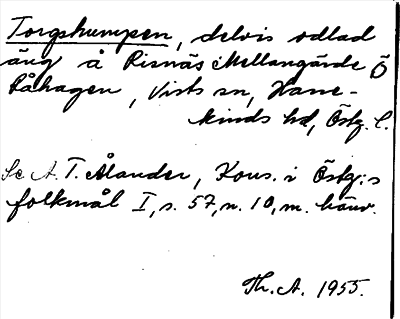 Torpshumpen, delvis odlad
äng å Risnäs Mellangärde Ö
Råhagen, Vists sn, Hane-
kinds hd, Östg. l.
Se A. T. Ålander, Kons. i Östg:s
folkmål I, s. 57, n. 10, m. hänv.
Th. A. 1955.